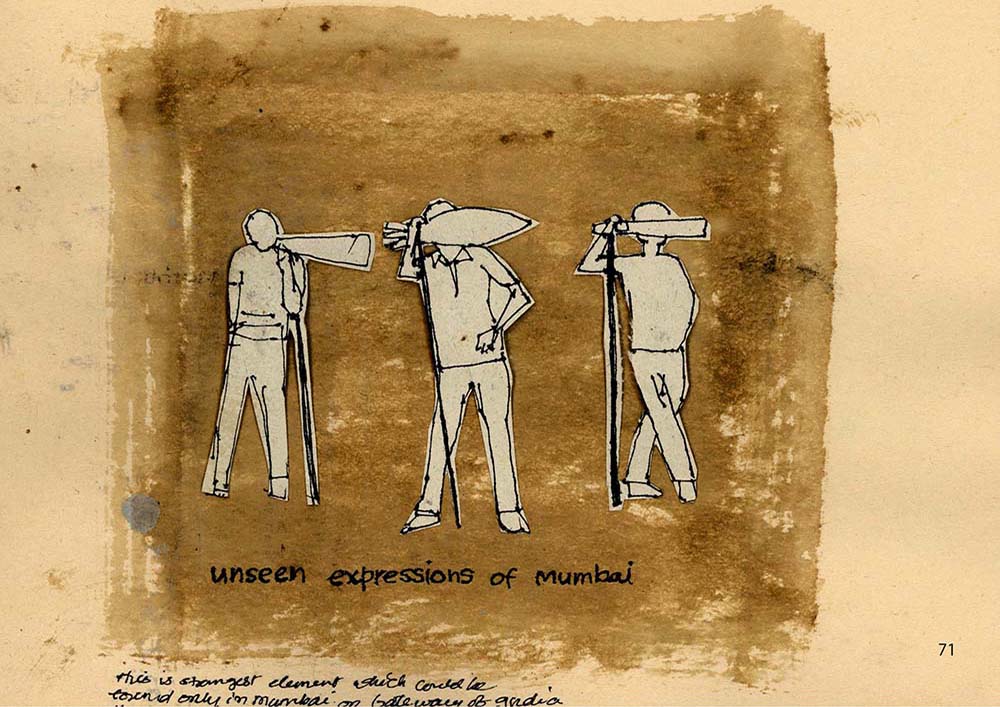 unseen expressions of mumbai
71
this is strangest element which could be
found only in mumbai. on Gateway of India